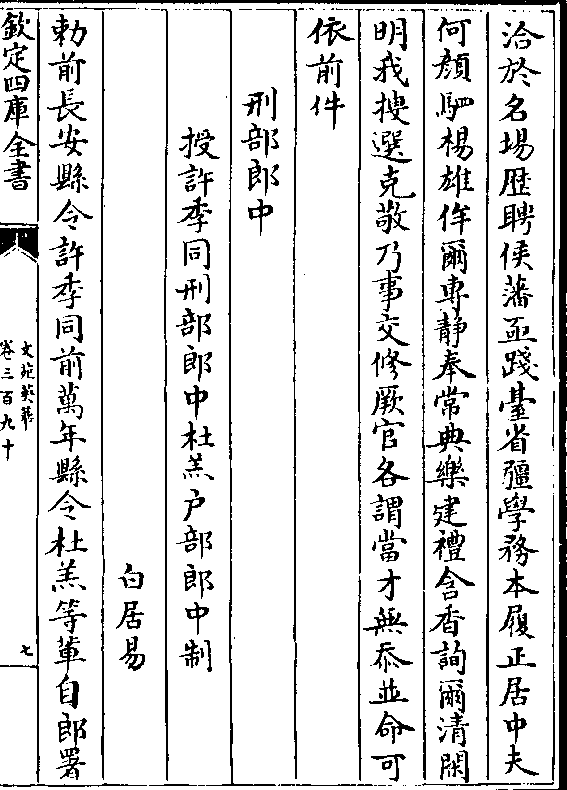 洽於名場歴聘侯藩亟踐臺省彊學務本履正居中夫
何顔駟楊雄侔爾専静奉常典樂建禮含香詢爾清閑
明我搜選克敬乃事交修厥官各謂當才無忝並命可
依前件
刑部郎中
授許季同刑部郎中杜羔户部郎中制
白居易
勅前長安縣令許季同前萬年縣令杜羔等輩自郎署
欽定四庫全書
文苑英華
卷三百九十
七